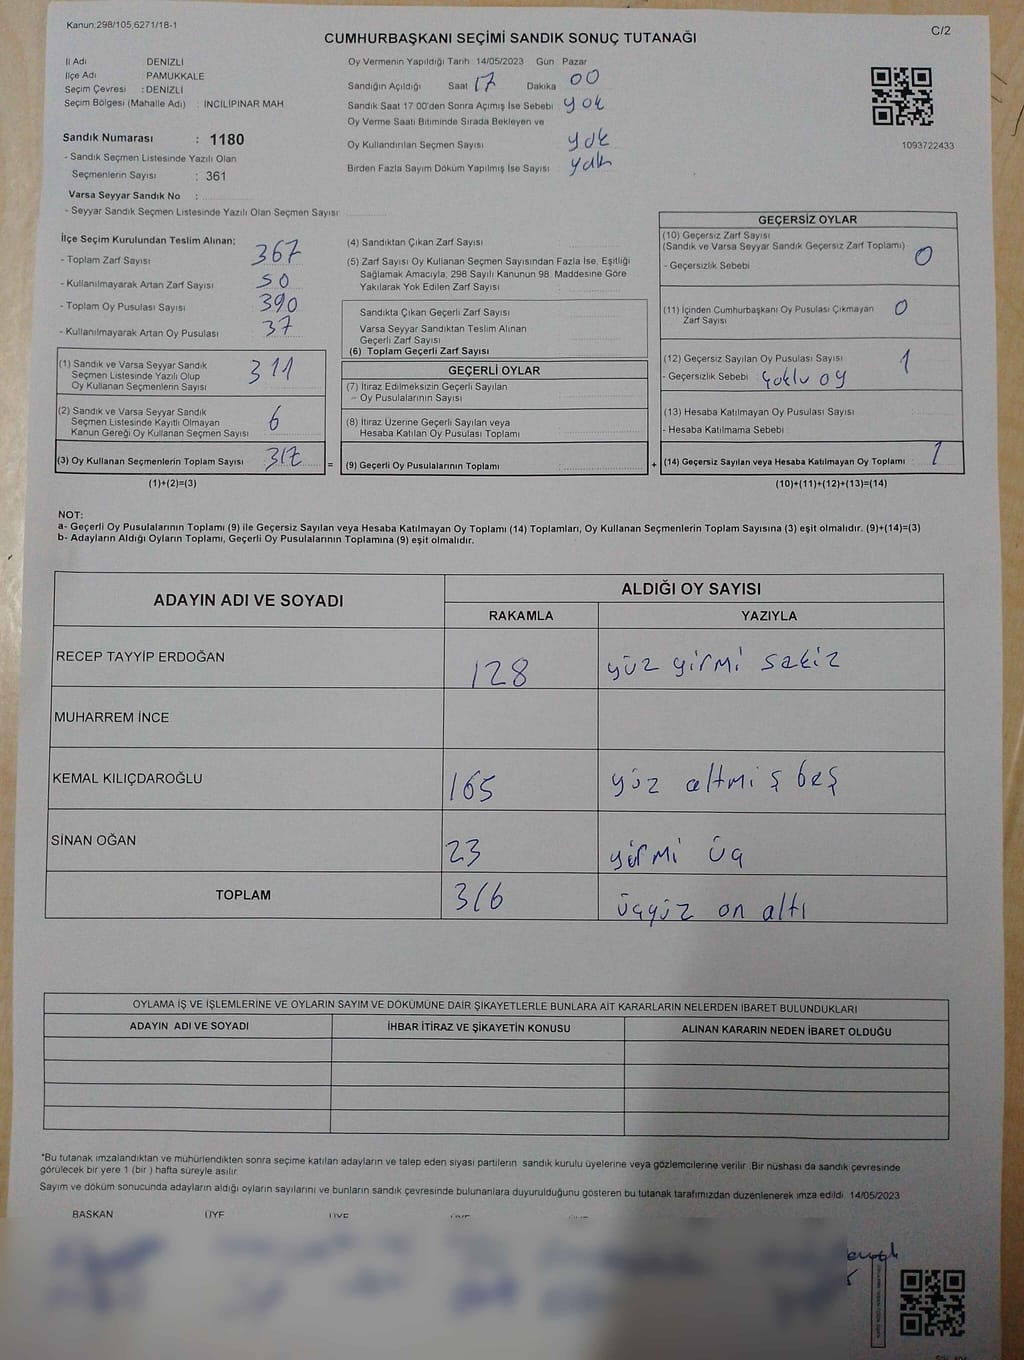 Kanun:298/105,6271/18-1
C/2
CUMHURBAŞKANI SEÇİMİ SANDIK SONUÇ TUTANAĞI
İl Adı DENİZLİ
İlçe Adı PAMUKKALE
Seçim Çevresi : DENİZLİ
Seçim Bölgesi (Mahalle Adı) : İNCİLİPINAR MAH
Sandık Numarası : 1180
- Sandık Seçmen Listesinde Yazılı Olan
Seçmenlerin Sayısı : 361
Varsa Seyyar Sandık No :
- Seyyar Sandık Seçmen Listesinde Yazılı Olan Seçmen Sayısı
Oy Vermenin Yapıldığı Tarih : 14/05/2023 Gün Pazar
Sandığın Açıldığı Saat 17 Dakika 00
Sandık Saat 17:00'den Sonra Açımış İse Sebebi : yok
Oy Verme Saati Bitiminde Sırada Bekleyen ve
Oy Kullandırılan Seçmen Sayısı yok
Birden Fazla Sayım Döküm Yapılmış İse Sayısı yok
1093722433
İlçe Seçim Kurulundan Teslim Alınan;
- Toplam Zarf Sayısı 367
- Kullanılmayarak Artan Zarf Sayısı 50
- Toplam Oy Pusulası Sayısı 390
- Kullanılmayarak Artan Oy Pusulası 37
(1) Sandık ve Varsa Seyyar Sandık
Seçmen Listesinde Yazılı Olup
Oy Kullanan Seçmenlerin Sayısı 311
(2) Sandık ve Varsa Seyyar Sandık
Seçmen Listesinde Kayıtlı Olmayan
Kanun Gereği Oy Kullanan Seçmen Sayısı 6
(3) Oy Kullanan Seçmenlerin Toplam Sayısı 317 =
(1)+(2)=(3)
(4) Sandıktan Çıkan Zarf Sayısı
(5) Zarf Sayısı Oy Kullanan Seçmen Sayısından Fazla İse, Eşitliği
Sağlamak Amacıyla, 298 Sayılı Kanunun 98. Maddesine Göre
Yakılarak Yok Edilen Zarf Sayısı
Sandıkta Çıkan Geçerli Zarf Sayısı
Varsa Seyyar Sandıktan Teslim Alınan
Geçerli Zarf Sayısı
(6) Toplam Geçerli Zarf Sayısı
GEÇERLİ OYLAR
(7) İtiraz Edilmeksizin Geçerli Sayılan
- Oy Pusulalarının Sayısı
(8) İtiraz Üzerine Geçerli Sayılan veya
Hesaba Katılan Oy Pusulası Toplamı
(9) Geçerli Oy Pusulalarının Toplamı +
GEÇERSİZ OYLAR
(10) Geçersiz Zarf Sayısı
(Sandık ve Varsa Seyyar Sandık Geçersiz Zarf Toplamı) 0
- Geçersizlik Sebebi
(11) İçinden Cumhurbaşkanı Oy Pusulası Çıkmayan 0
Zarf Sayısı
(12) Geçersiz Sayılan Oy Pusulası Sayısı 1
- Geçersizlik Sebebi Çoklu oy
(13) Hesaba Katılmayan Oy Pusulası Sayısı
- Hesaba Katılmama Sebebi
(14) Geçersiz Sayılan veya Hesaba Katılmayan Oy Toplamı : 1
(10)+(11)+(12)+(13)=(14)
NOT:
a- Geçerli Oy Pusulalarının Toplamı (9) ile Geçersiz Sayılan veya Hesaba Katılmayan Oy Toplamı (14) Toplamları, Oy Kullanan Seçmenlerin Toplam Sayısına (3) eşit olmalıdır. (9)+(14)=(3)
b- Adayların Aldığı Oyların Toplamı, Geçerli Oy Pusulalarının Toplamına (9) eşit olmalıdır.
ADAYIN ADI VE SOYADI ALDIĞI OY SAYISI
RAKAMLA YAZIYLA
RECEP TAYYİP ERDOĞAN 128 yüz yirmi sekiz
MUHARREM İNCE
KEMAL KILIÇDAROĞLU 165 yüz altmış beş
SİNAN OĞAN 23 yirmi üç
TOPLAM 316 üçyüz on altı
OYLAMA İŞ VE İŞLEMLERİNE VE OYLARIN SAYIM VE DÖKÜMÜNE DAİR ŞİKAYETLERLE BUNLARA AİT KARARLARIN NELERDEN İBARET BULUNDUKLARI
ADAYIN ADI VE SOYADI İHBAR İTİRAZ VE ŞİKAYETİN KONUSU ALINAN KARARIN NEDEN İBARET OLDUĞU
*Bu tutanak imzalandıktan ve mühürlendikten sonra seçime katılan adayların ve talep eden siyasi partilerin sandık kurulu üyelerine veya gözlemcilerine verilir. Bir nüshası da sandık çevresinde
görülecek bir yere 1 (bir ) hafta süreyle asılır.
Sayım ve döküm sonucunda adayların aldığı oyların sayılarını ve bunların sandık çevresinde bulunanlara duyurulduğunu gösteren bu tutanak tarafımızdan düzenlenerek imza edildi. 14/05/2023
BAŞKAN ÜYE ÜYE